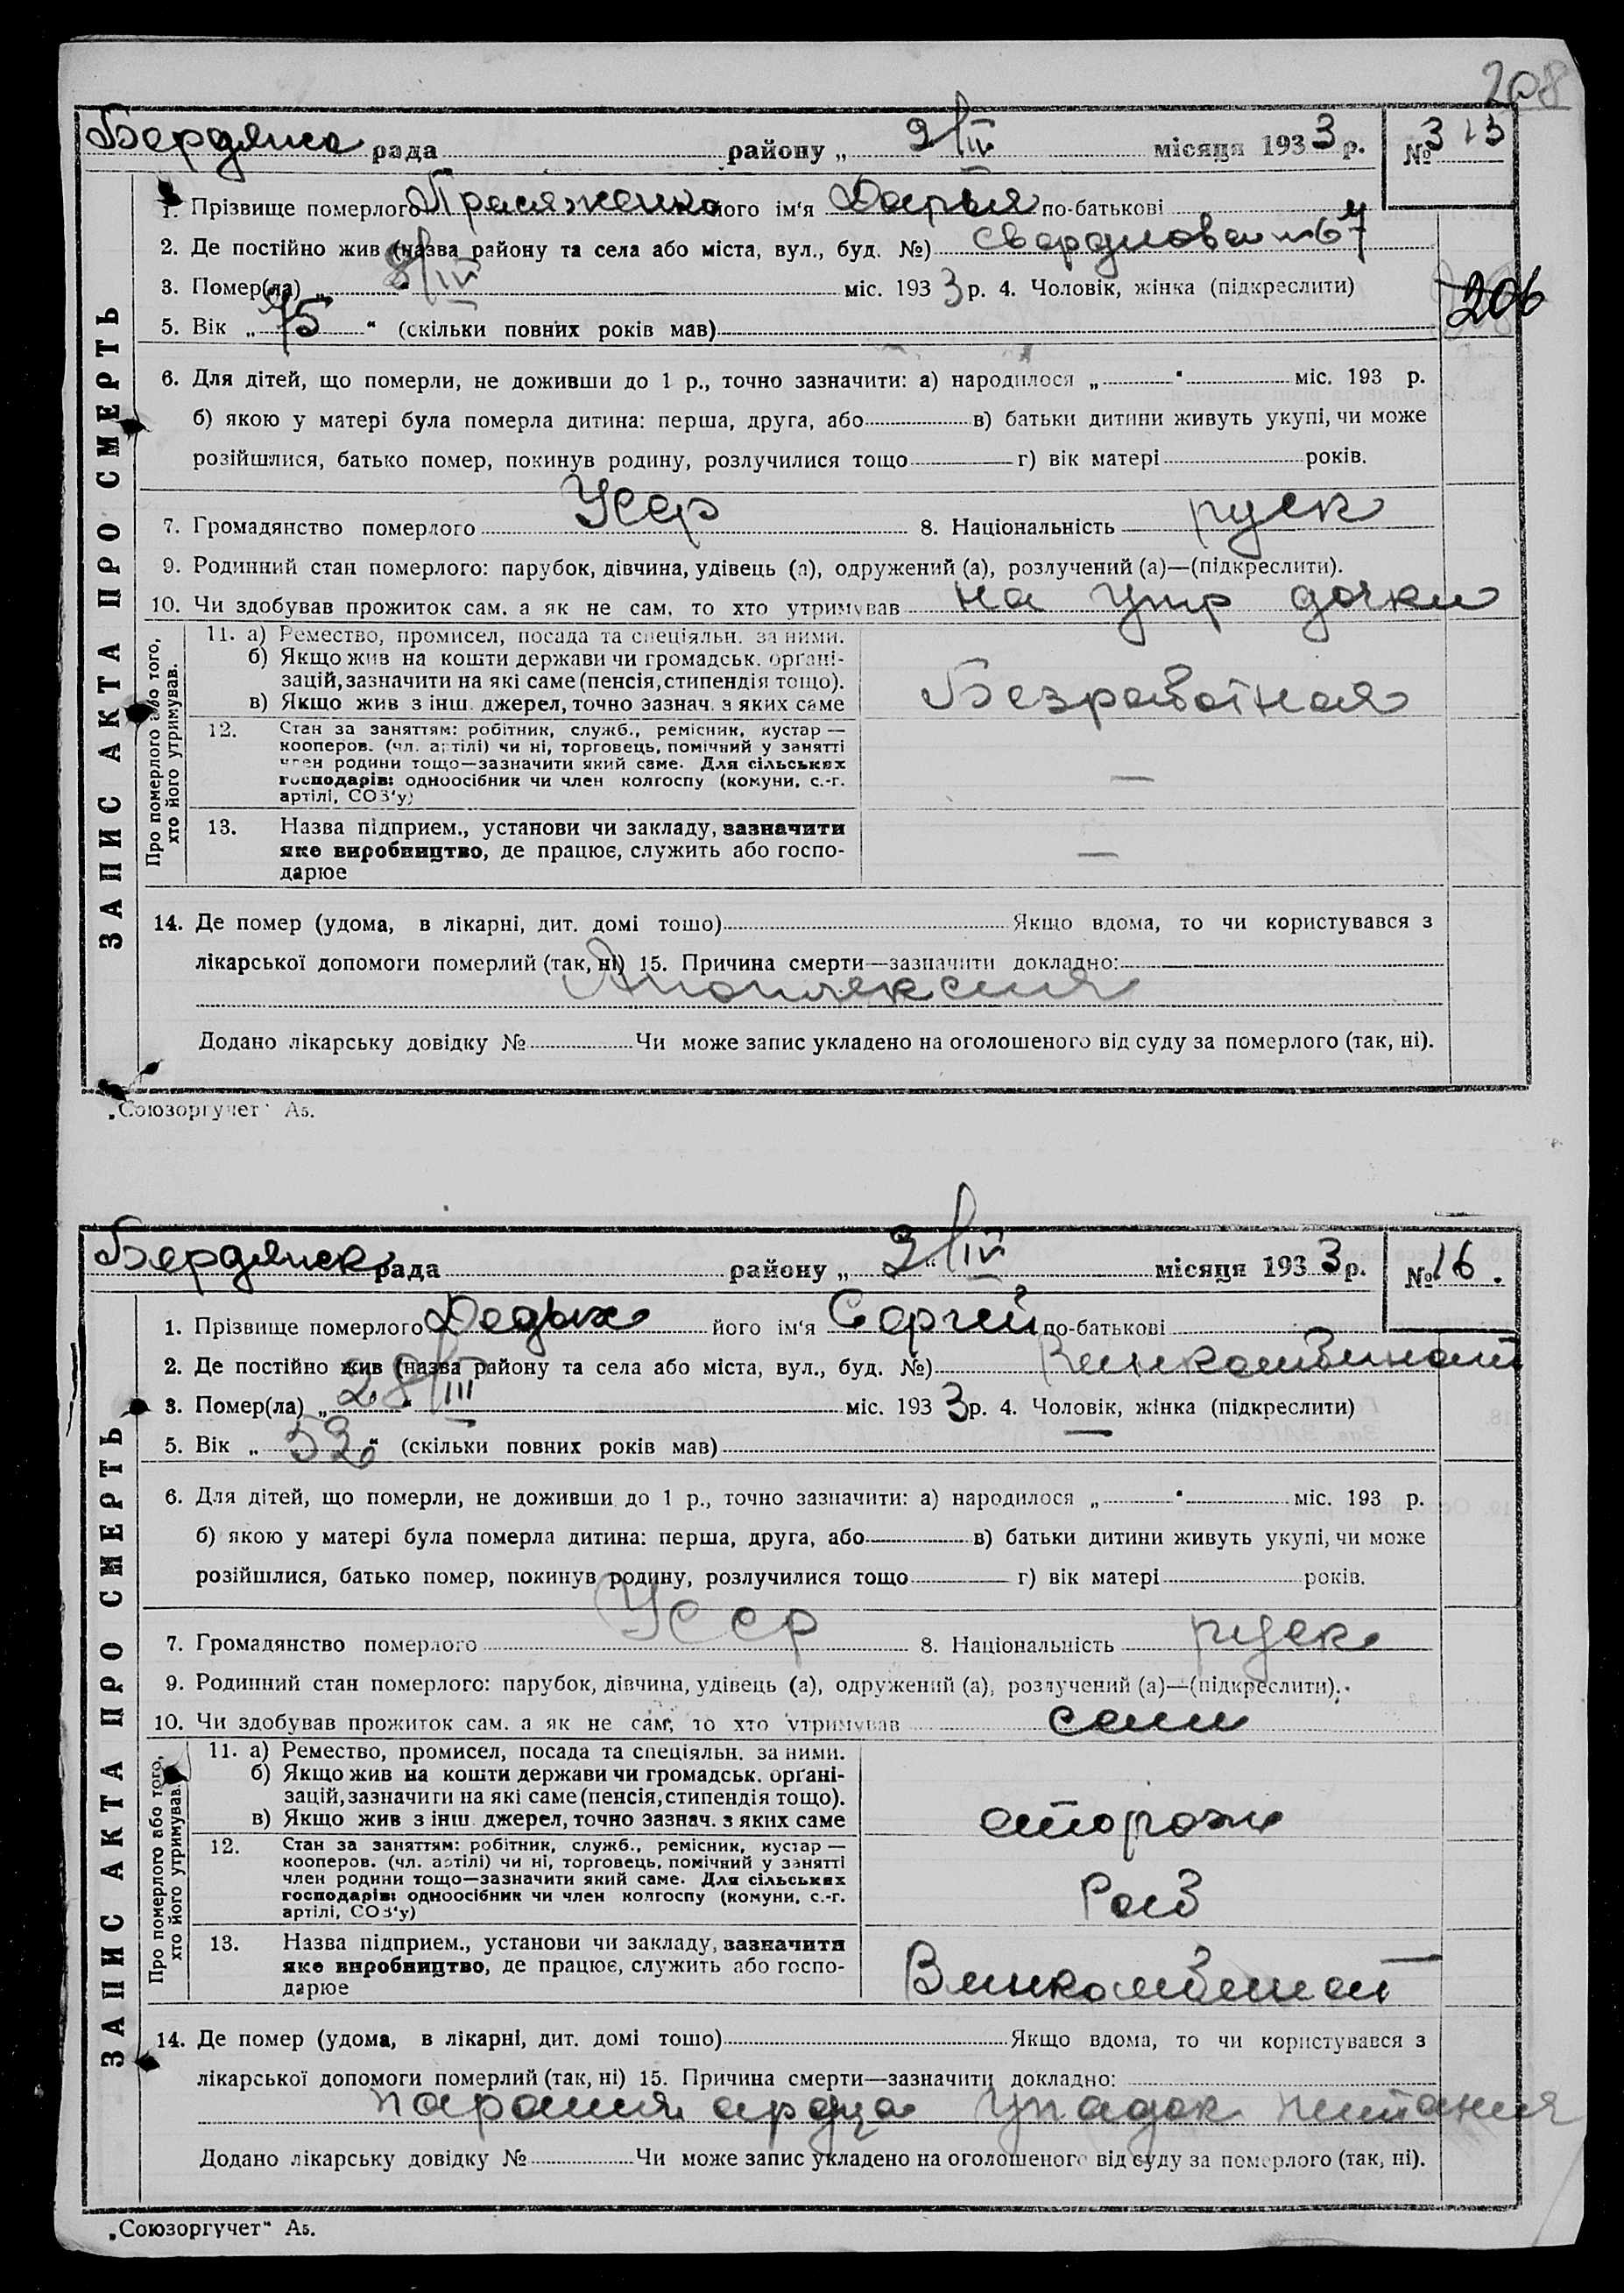 208
Бердянск рада района „ 9/IV місяця 1933 р. № 313
ЗАПИС АКТА ПРО СМЕРТЬ
1. Прізвище померлого його ім'я Дарья по-батькові
2. Де постійно жив (назва району та села або міста, вул., буд. №) Свердлова 67
3. Помер(ла) „ 8/IV міс. 1933 р. 4. Чоловік, жінка (підкреслити)
206
5. Вік „ 75 “ (скільки повних років мав)
6. Для дітей, що померли, не доживши до 1 р., точно зазначити: а) народилося „ “ міс. 193 р.
б) якою у матері була померла дитина: перша, друга, або в) батьки дитини живуть укупі, чи може
розійшлися, батько помер, покинув родину, розлучилися тощо г) вік матері років.
7. Громадянство померлого Усср 8. Національність руск
9. Родинний стан померлого: парубок, дівчина, удівець (а), одружений (а), розлучений (а)—(підкреслити).
10. Чи здобував прожиток сам. а як не сам, то хто утримував на утр дочки
Про померлого або того, хто його утримував.
11. а) Ремество, промисел, посада та спеціяльн. за ними.
б) Якщо жив на кошти держави чи громадськ. орґані-
зацій, зазначити на які саме (пенсія, стипендія тощо).
в) Якщо жив з інш. джерел, точно зазнач. з яких саме
Безработная
12. Стан за заняттям: робітник, служб., ремісник, кустар —
кооперов. (чл. артілі) чи ні, торговець, помічний у занятті
член родини тощо—зазначити який саме. Для сільських
господарів: одноосібник чи член колгоспу (комуни, с.-г.
артілі, СОЗ'у)
—
13. Назва підприєм., установи чи закладу, зазначити
яке виробництво, де працює, служить або госпо-
дарює
—
14. Де помер (удома, в лікарні, дит. домі тощо) Якщо вдома, то чи користувався з
лікарської допомоги померлий (так, ні) 15. Причина смерти—зазначити докладно:
Апоплексия
Додано лікарську довідку № Чи може запис укладено на оголошеного від суду за померлого (так, ні).
„Союзоргучет“ А5.
Бердянск рада району „ 9/IV місяця 1933 р. № 16.
ЗАПИС АКТА ПРО СМЕРТЬ
1. Прізвище померлого Дедых його ім'я Сергей по-батькові
2. Де постійно жив (назва району та села або міста, вул., буд. №) Винкомбинат
3. Помер(ла) „ 28/III міс. 1933 р. 4. Чоловік, жінка (підкреслити)
5. Вік „ 52 “ (скільки повних років мав)
6. Для дітей, що померли, не доживши до 1 р., точно зазначити: а) народилося „ “ міс. 193 р.
б) якою у матері була померла дитина: перша, друга, або в) батьки дитини живуть укупі, чи може
розійшлися, батько помер, покинув родину, розлучилися тощо г) вік матері років.
7. Громадянство померлого Усср 8. Національність руск
9. Родинний стан померлого: парубок, дівчина, удівець (а), одружений (а), розлучений (а)—(підкреслити).
10. Чи здобував прожиток сам. а як не сам, то хто утримував сам
Про померлого або того, хто його утримував.
11. а) Ремество, промисел, посада та спеціяльн. за ними.
б) Якщо жив на кошти держави чи громадськ. орґані-
зацій, зазначити на які саме (пенсія, стипендія тощо).
в) Якщо жив з інш. джерел, точно зазнач. з яких саме
сторож
12. Стан за заняттям: робітник, служб., ремісник, кустар —
кооперов. (чл. артілі) чи ні, торговець, помічний у занятті
член родини тощо—зазначити який саме. Для сільських
господарів: одноосібник чи член колгоспу (комуни, с.-г.
артілі, СОЗ'у)
Роб
13. Назва підприєм., установи чи закладу, зазначити
яке виробництво, де працює, служить або госпо-
дарює
Винкомбинат
14. Де помер (удома, в лікарні, дит. домі тощо) Якщо вдома, то чи користувався з
лікарської допомоги померлий (так, ні) 15. Причина смерти—зазначити докладно:
упадок питания
Додано лікарську довідку № Чи може запис укладено на оголошеного від суду за померлого (так, ні).
„Союзоргучет“ А5.